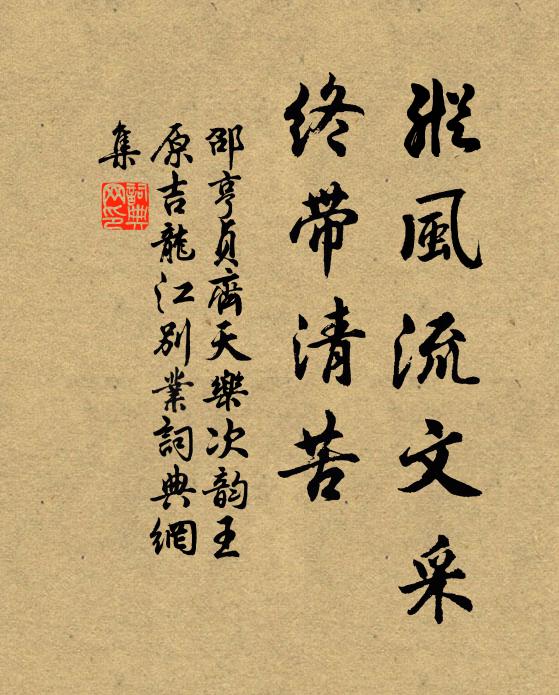 縱風流文采
終帶清苦
邵亨貞齊天樂次韵王
原吉龍江別業詞典網
集
詞典網印